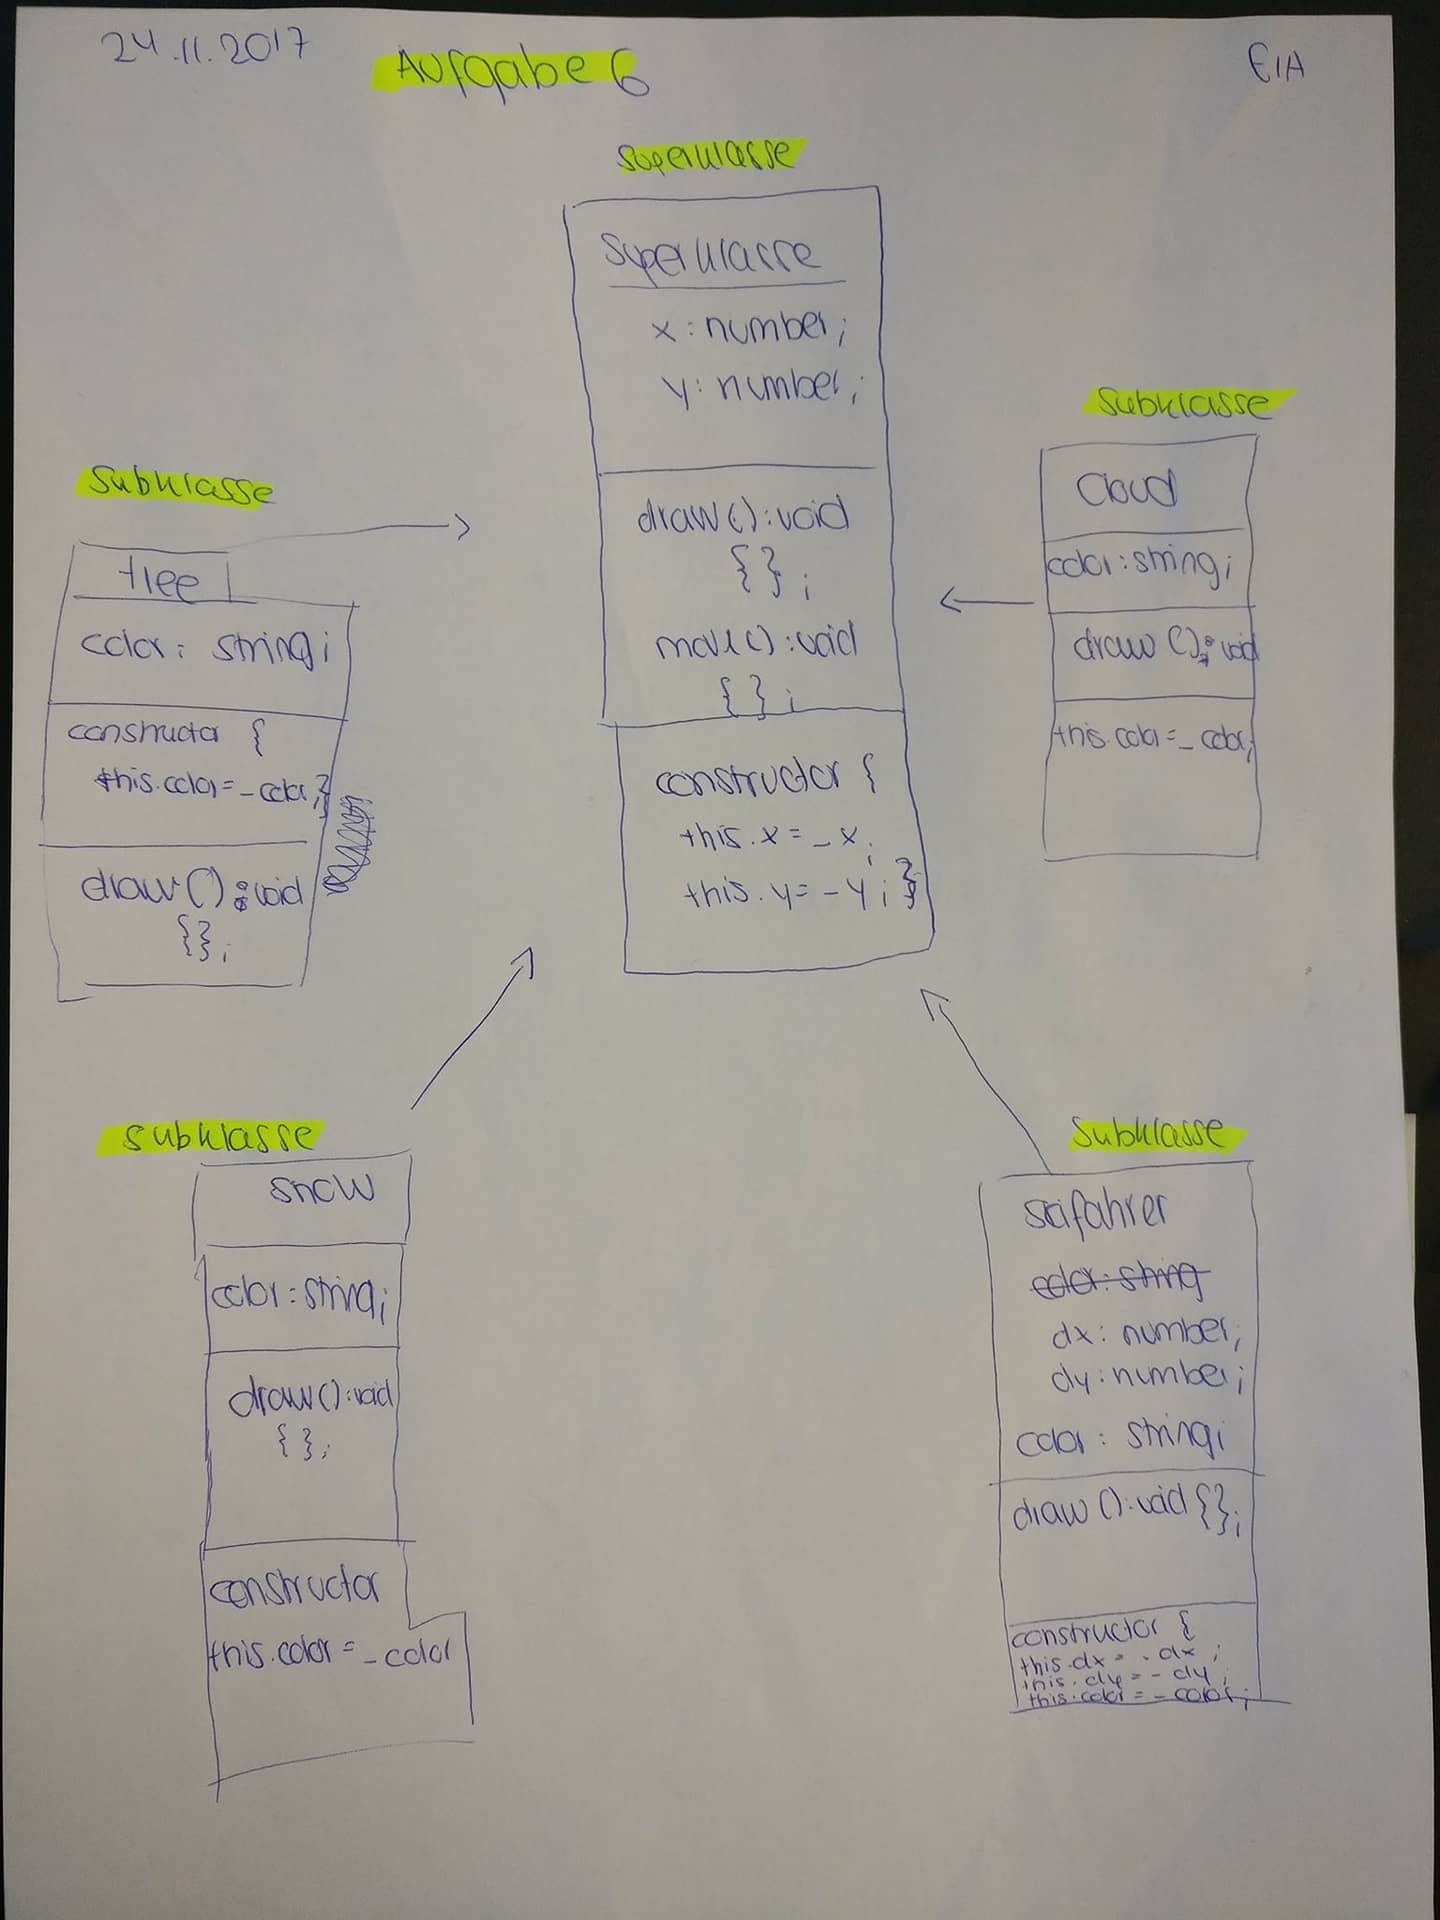 24.11.2017
Aufgabe 6
EIA
Superklasse
Superklasse
x: number;
y: number;
draw(): void
{};
move(): void
{};
constructor {
this.x = _x;
this.y = _y; }
Subklasse
tree
color: string;
constructor {
this.color = _color; }
draw(): void
{};
Subklasse
Cloud
color: string;
draw(): void
this.color = _color;
Subklasse
snow
color: string;
draw(): void
{};
constructor
this.color = _color
Subklasse
Skifahrer
color: string
dx: number;
dy: number;
color: string;
draw(): void {};
constructor {
this.dx = _dx;
this.dy = _dy;
this.color = _color;